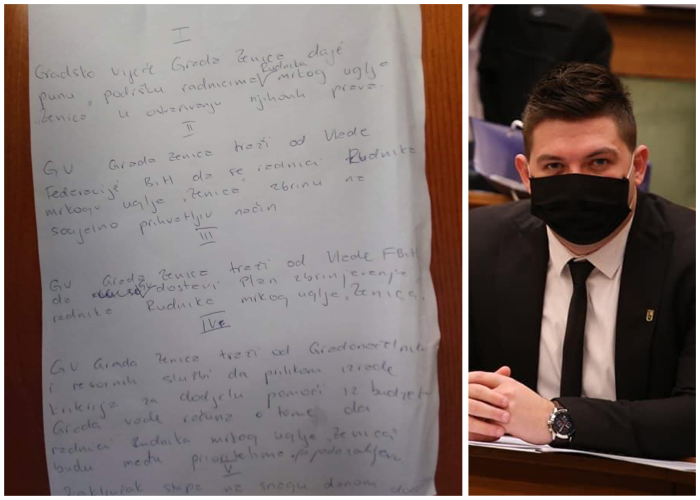 I
Gradsko vijeće Grada Zenica daje
punu podršku radnicima Rudnika mrkog uglje
"Zenica" u ostvarivanju njihovih prava.
II
GV Grada Zenica traži od Vlade
Federacije BiH da se radnici Rudnika
mrkog uglje "Zenica" zbrinu na
socijalno prihvatljiv način
III
GV Grada Zenice traži od Vlade FBiH
da dostavi Plan zbrinjavanja
radnika Rudnika mrkog uglje "Zenica".
IV
GV Grada Zenica traži od Gradonačelnika
i resornih službi da prilikom izrade
kriterija za dodjelu pomoći iz budžeta
Grada vode računa o tome da
radnici Rudnika mrkog uglje "Zenica"
budu među prioritetima
V
Zaključak stupa na snagu danom